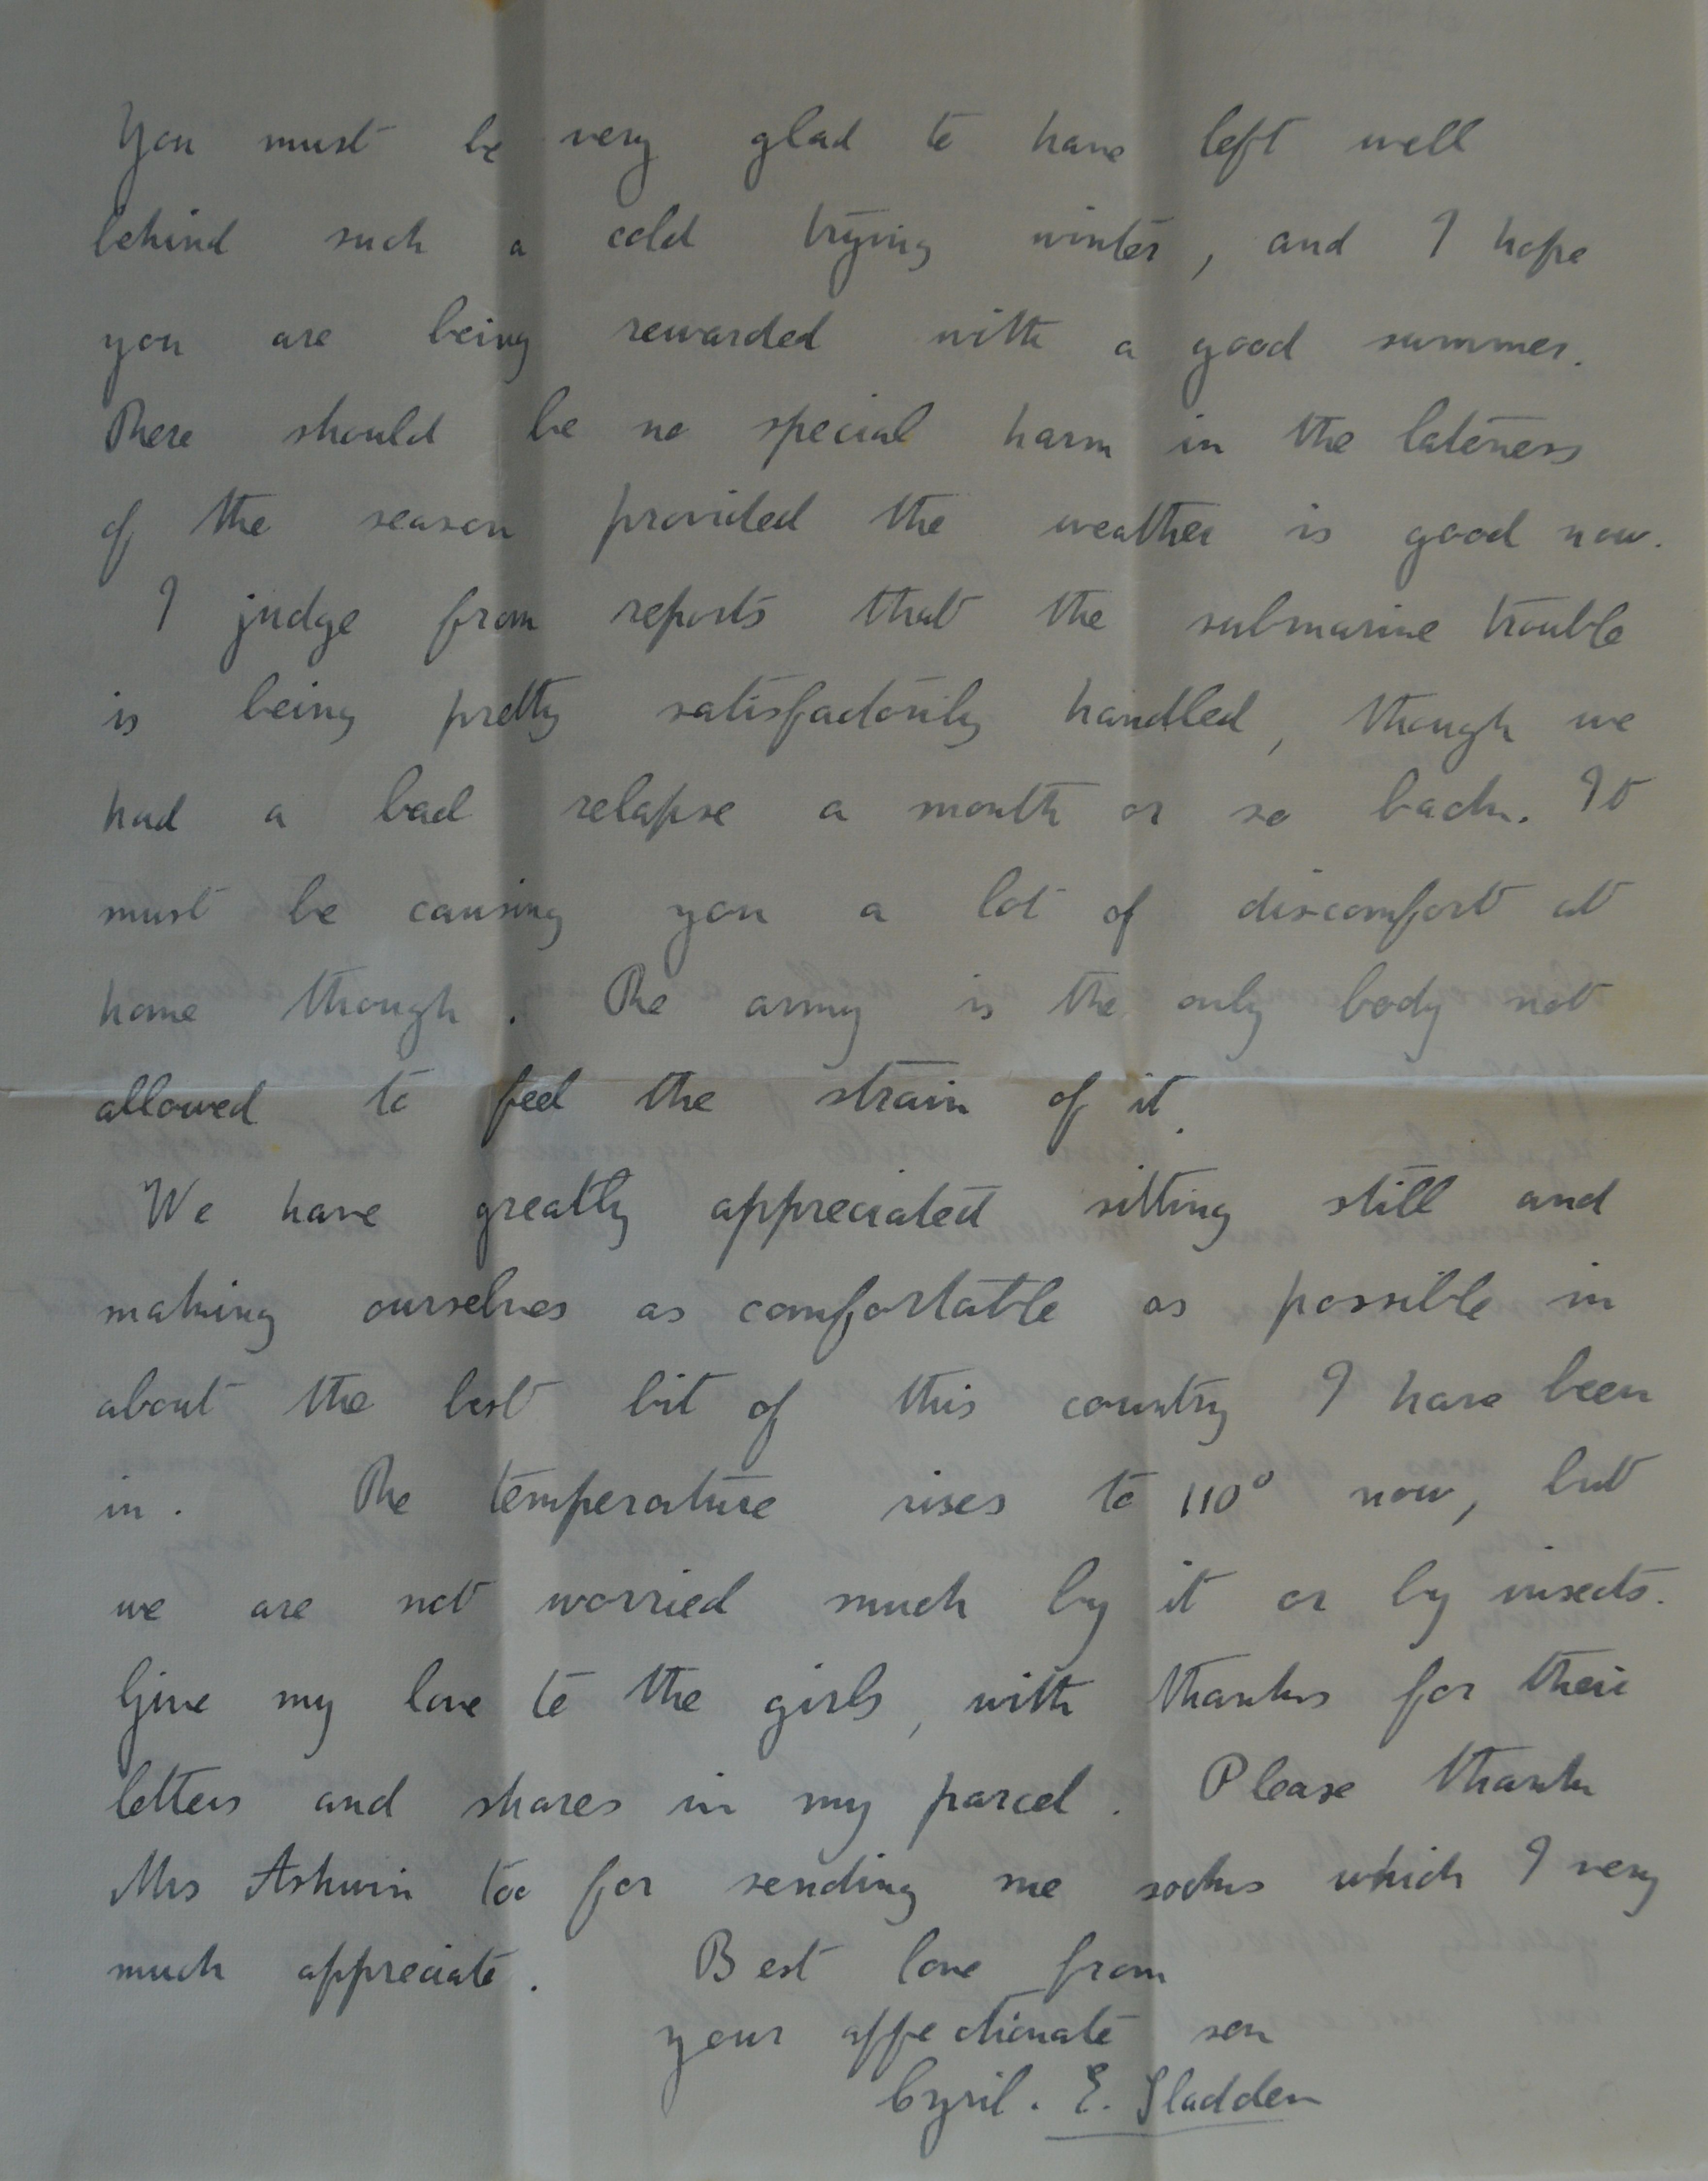 You must be very glad to have left well
behind such a cold trying winter, and I hope
you are being rewarded with a good summer.
There should be no special harm in the lateness
of the season provided the weather is good now.
I judge from reports that the submarine trouble
is being pretty satisfactorily handled, though we
had a bad relapse a month or so back. It
must be causing you a lot of discomfort at
home though. The army is the only body not
allowed to feel the strain of it.
We have greatly appreciated sitting still and
making ourselves as comfortable as possible in
about the best bit of this country I have been
in. The temperature rises to 110° now, but
we are not worried much by it or by insects.
Give my love to the girls, with thanks for their
letters and shares in my parcel. Please thank
Mrs Ashwin too for sending me socks which I very
much appreciate. Best love from
your affectionate son
Cyril. E. Sladden